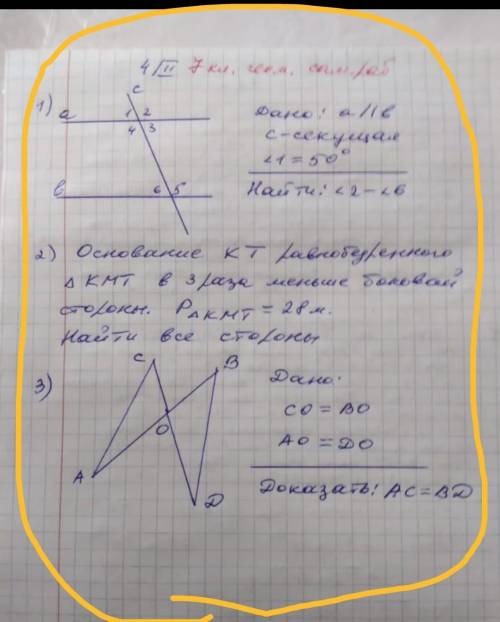 4/II 7 кл. геом. сам. раб
1)
c
a
1 2
4 3
b
6 5
Дано: a∥b
c-секущая
∠1=50°
Найти: ∠2-∠6
2) Основание KT равнобедренного
△KMT в 3 раза меньше боковой
стороны. P△KMT = 28 м.
Найти все стороны
3)
C
B
O
A
D
Дано:
CO = BO
AO = DO
Доказать: AC=BD